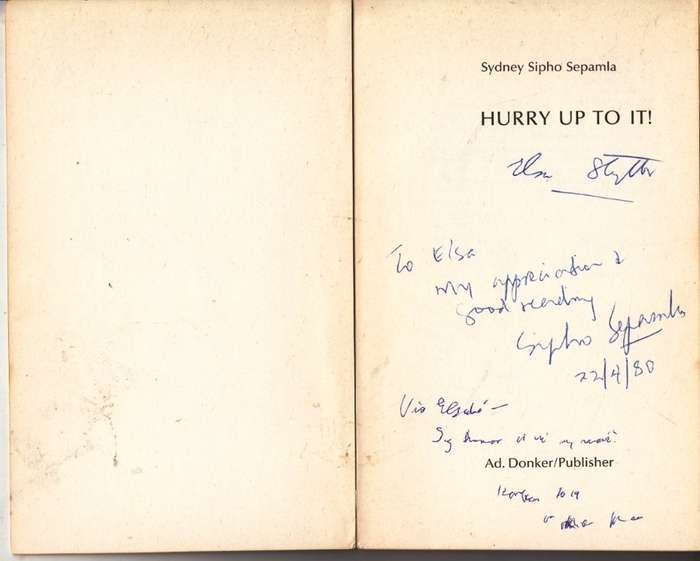 Sydney Sipho Sepamla
HURRY UP TO IT!
Elsa
To Elsa
My appreciation &
good reading
Sipho Sepamla
22/4/80
Vir Elsabé —
Sy
Ad. Donker/Publisher
2019